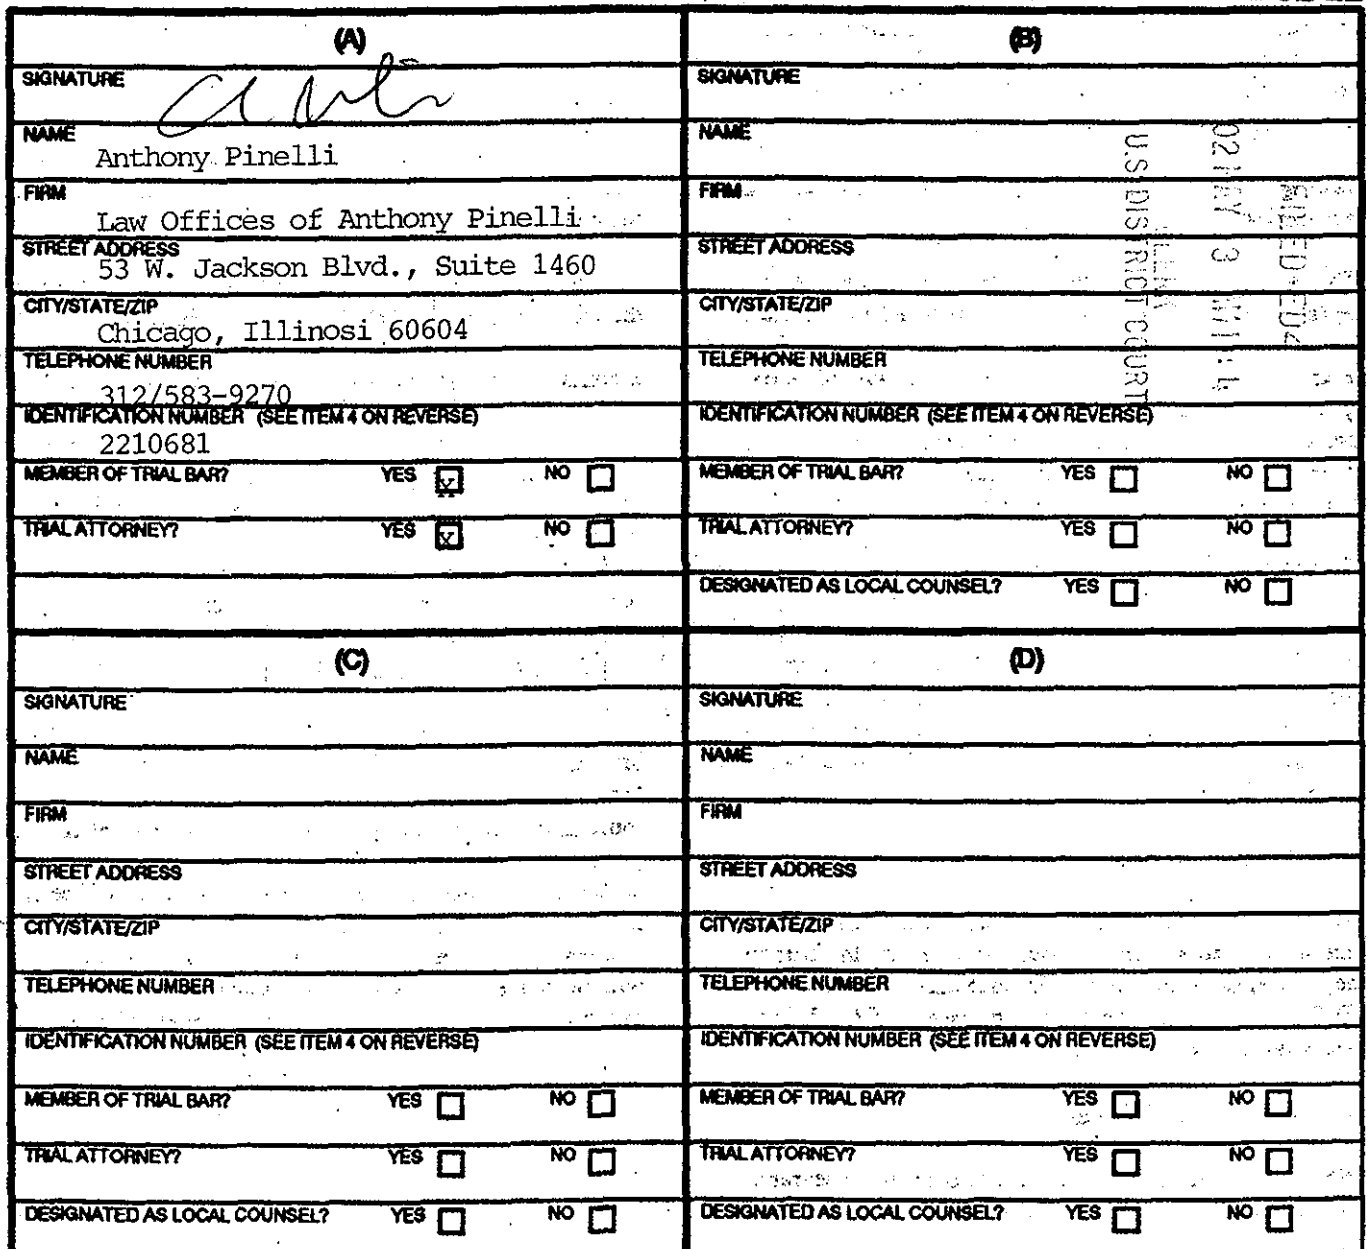 (A)
SIGNATURE
NAME
Anthony Pinelli
FIRM
Law Offices of Anthony Pinelli
STREET ADDRESS
53 W. Jackson Blvd., Suite 1460
CITY/STATE/ZIP
Chicago, Illinosi 60604
TELEPHONE NUMBER
312/583-9270
IDENTIFICATION NUMBER (SEE ITEM 4 ON REVERSE)
2210681
MEMBER OF TRIAL BAR? YES X NO
TRIAL ATTORNEY? YES X NO
(B)
SIGNATURE
NAME
FIRM
STREET ADDRESS
CITY/STATE/ZIP
TELEPHONE NUMBER
IDENTIFICATION NUMBER (SEE ITEM 4 ON REVERSE)
MEMBER OF TRIAL BAR? YES NO
TRIAL ATTORNEY? YES NO
DESIGNATED AS LOCAL COUNSEL? YES NO
02 MAY 3
U.S. DISTRICT COURT
(C)
SIGNATURE
NAME
FIRM
STREET ADDRESS
CITY/STATE/ZIP
TELEPHONE NUMBER
IDENTIFICATION NUMBER (SEE ITEM 4 ON REVERSE)
MEMBER OF TRIAL BAR? YES NO
TRIAL ATTORNEY? YES NO
DESIGNATED AS LOCAL COUNSEL? YES NO
(D)
SIGNATURE
NAME
FIRM
STREET ADDRESS
CITY/STATE/ZIP
TELEPHONE NUMBER
IDENTIFICATION NUMBER (SEE ITEM 4 ON REVERSE)
MEMBER OF TRIAL BAR? YES NO
TRIAL ATTORNEY? YES NO
DESIGNATED AS LOCAL COUNSEL? YES NO